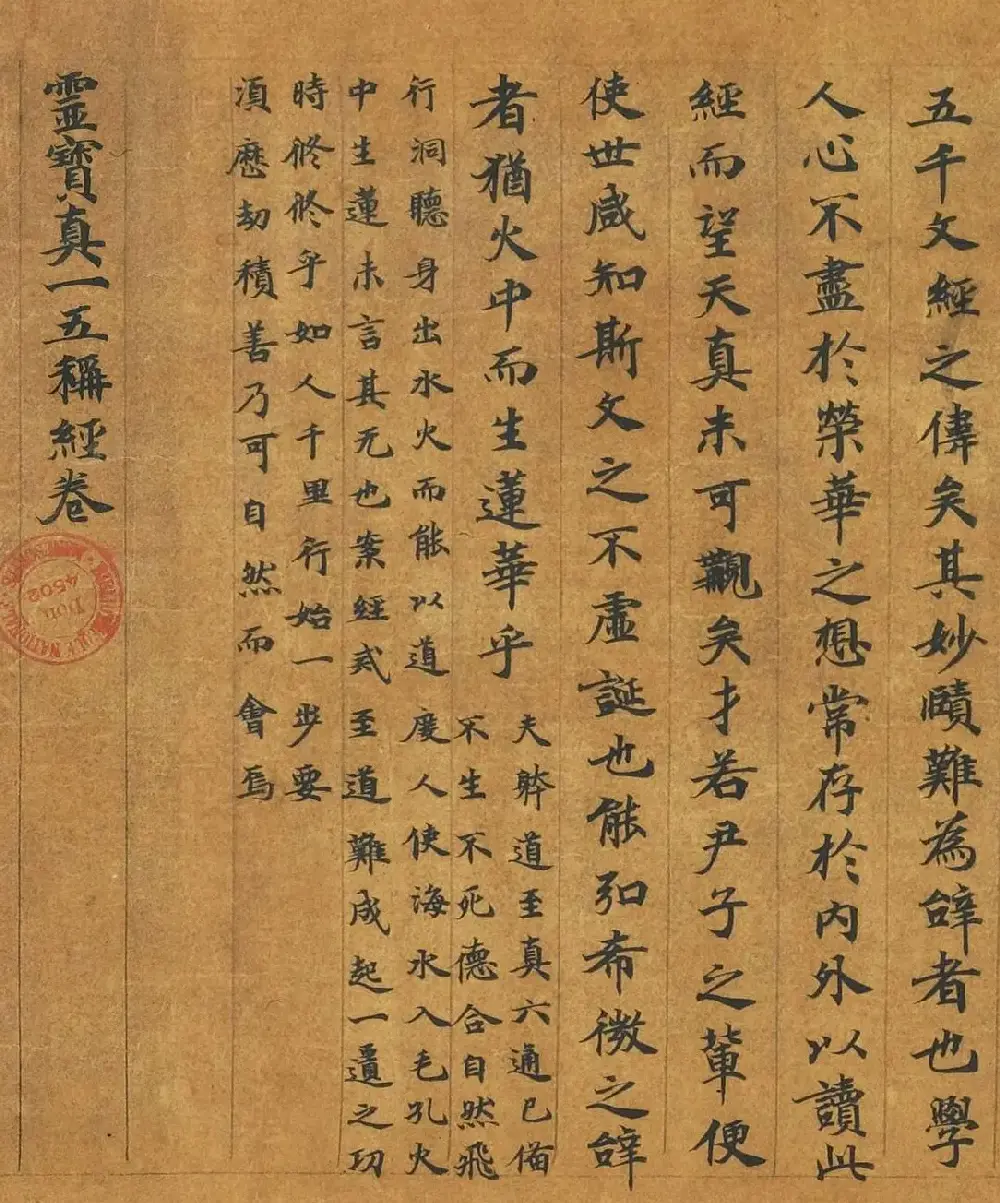 五千文經之偉矣其妙賾難為辝者也學
人心不盡於榮華之想常存於內外以讀此
經而望天真未可觀矣才若尹子之輩便
使世咸知斯文之不虛誕也能弘希微之辝
者猶火中而生蓮華乎
夫躰道至真六通已俻
不生不死德合自然飛
行洞聽身出水火而能以道度人使海水入毛孔火
中生蓮未言其无也案經戒至道難成起一匱之功
時悠悠乎如人千里行始一步要
湏歷劫積善乃可自然而會焉
靈寶真一五稱經卷
Don
4502